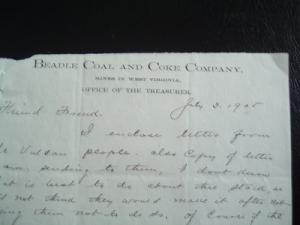 BEADLE COAL AND COKE COMPANY,
MINES IN WEST VIRGINIA.
OFFICE OF THE TREASURER.
July 3. 1905
Friend.
I enclose letter from
Vulcan people. also Copy of letter
sending to them, I dont
is best to do about this
not think they would make it after
them not to do so. of Course if the